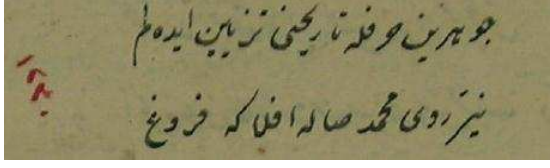 جوهرین حرفله تاریخنی تزیین ایده‌لم
نیّر روی محمد صاله افلاکه فروغ